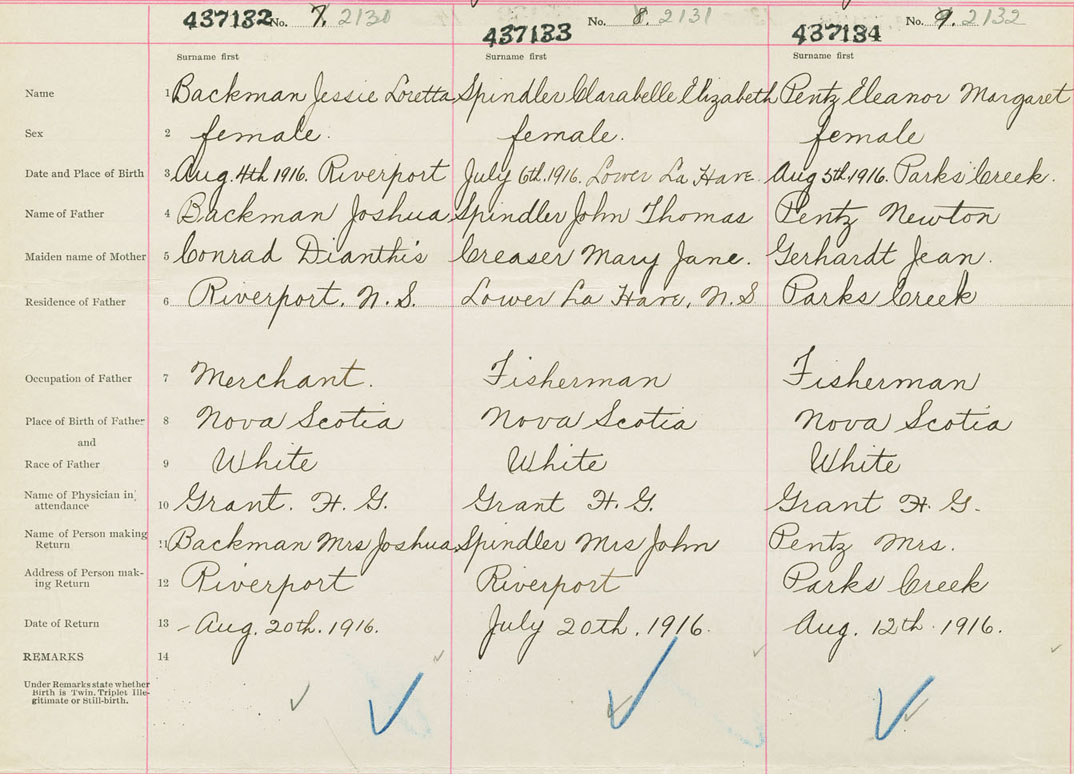 437132 No. 7. 2130
437133 No. 8. 2131
437134 No. 9. 2132
Surname first Surname first Surname first
Name 1 Backman Jessie Loretta Spindler Clarabelle Elizabeth Pentz Eleanor Margaret
Sex 2 female. female. female
Date and Place of Birth 3 Aug. 4th 1916. Riverport July 6th. 1916. Lower La Have. Aug 5th. 1916. Parks Creek.
Name of Father 4 Backman Joshua Spindler John Thomas Pentz Newton
Maiden name of Mother 5 Conrad Dianthis Creaser Mary Jane. Gerhardt Jean.
Residence of Father 6 Riverport, N.S. Lower La Have, N.S Parks Creek
Occupation of Father 7 Merchant. Fisherman Fisherman
Place of Birth of Father 8 Nova Scotia Nova Scotia Nova Scotia
and
Race of Father 9 White White White
Name of Physician in
attendance 10 Grant. H. G. Grant H. G. Grant H. G.
Name of Person making
Return 11 Backman Mrs Joshua Spindler Mrs John Pentz Mrs.
Address of Person mak-
ing Return 12 Riverport Riverport Parks Creek
Date of Return 13 - Aug. 20th. 1916. July 20th. 1916. Aug. 12th. 1916.
REMARKS 14
Under Remarks state whether
Birth is Twin, Triplet Ille-
gitimate or Still-birth.